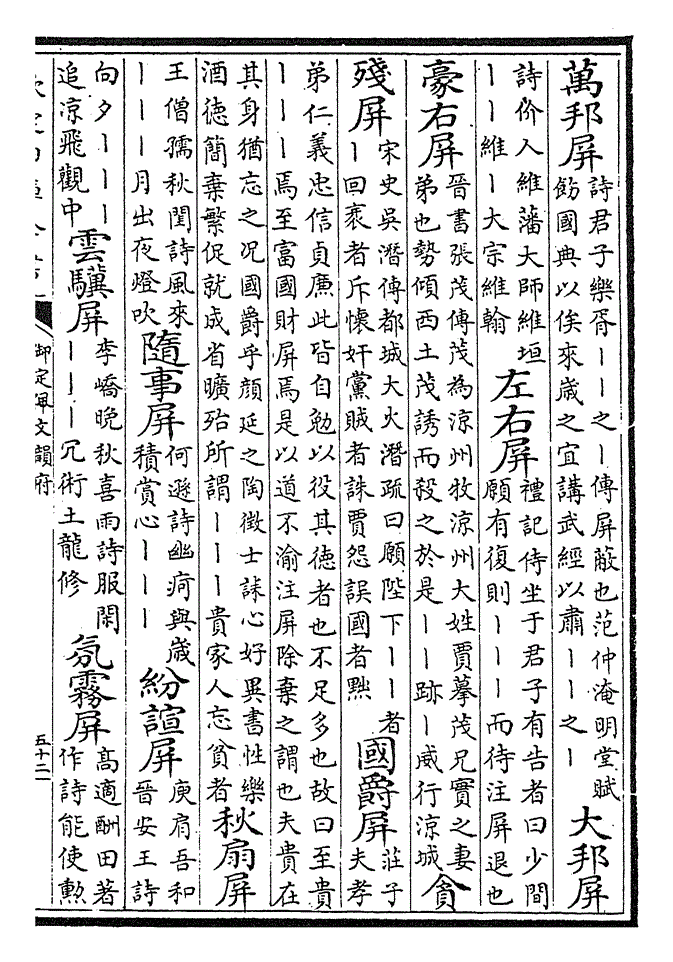 萬邦屏詩君子樂胥丨丨之丨傳屏蔽也范仲淹明堂賦飭國典以俟來歲之宜講武經以肅丨丨之丨大邦屏
詩价人維藩大師維垣丨丨維丨大宗維翰左右屏禮記侍坐于君子有告者曰少間願有復則丨丨而待注屏退也
豪右屏晉書張茂傳茂為涼州牧涼州大姓賈摹茂兄實之妻弟也勢傾西土茂誘而殺之於是丨丨跡丨威行涼城貪
殘屏宋史吳潛傳都城大火潛疏曰願陛下丨丨者丨回衺者斥懷奸黨賊者誅賈怨誤國者黜國爵屏莊子夫孝
弟仁義忠信貞廉此皆自勉以役其德者也不足多也故曰至貴丨丨丨焉至富國財屏焉是以道不渝注屏除棄之謂也夫貴在
其身猶忘之况國爵乎顔延之陶徵士誄心好異書性樂酒德簡棄繁促就成省曠殆所謂丨丨丨貴家人忘貧者秋扇屏
王僧孺秋閨詩風來丨丨丨月出夜燈吹隨事屏何遜詩幽痾與歲積賞心丨丨丨紛諠屏庾肩吾和晉安王詩
向夕丨丨丨追涼飛觀中雲驥屏李嶠晚秋喜雨詩服閑丨丨丨冗術土龍修氛霧屏高適酬田著作詩能使勳
御定佩文韻府
五十二